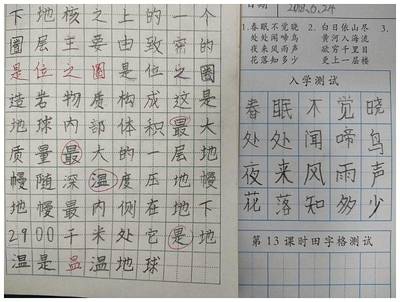 下地核之上的一个
圈层主要由致密的
是位之圈是位之圈
造岩物质构成这是
地球内部体积最大
质量最大的一层地
幔随深温度压地地
地幔最内侧在地下
2900千米处它是地
温是温温地球
日期 2018.6.24
1.春眠不觉晓
处处闻啼鸟
夜来风雨声
花落知多少
2.白日依山尽
黄河入海流
欲穷千里目
更上一层楼
3.
入学测试
春眠不觉晓
处处闻啼鸟
夜来风雨声
花落知多少
第13课时田字格测试